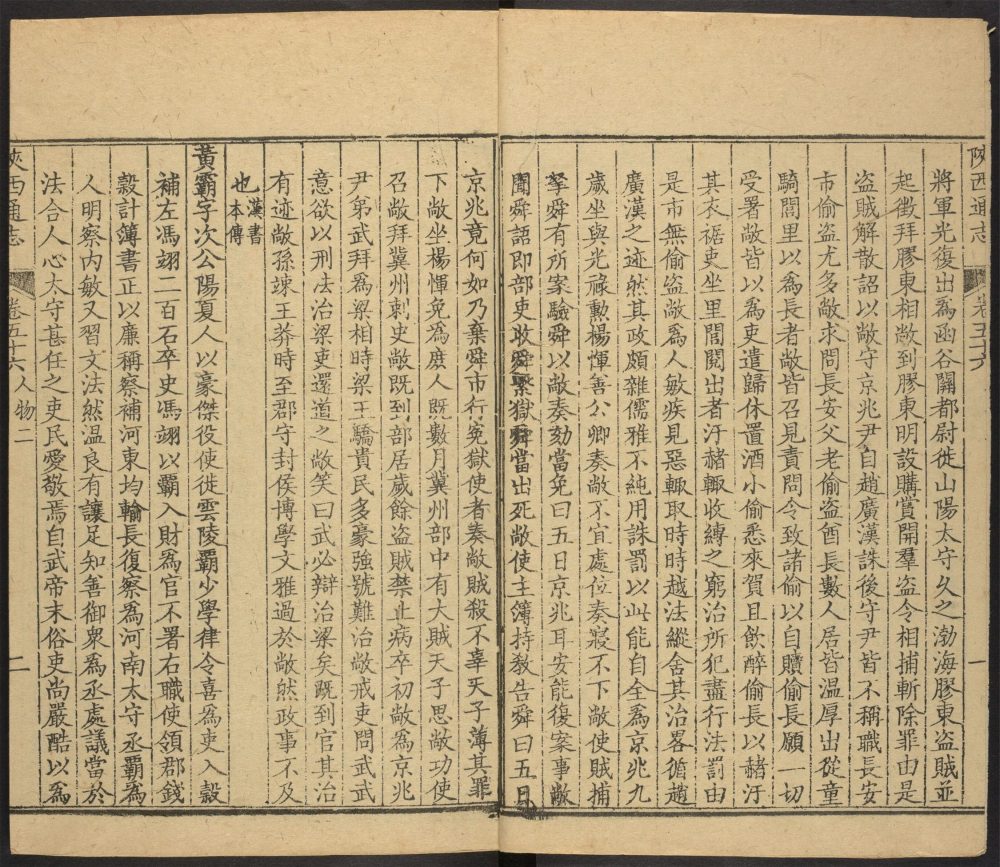 陝西通志 卷五十六 一
將軍光復出爲函谷關都尉徙山陽太守久之渤海膠東盜賊並
起徵拜膠東相敞到膠東明設購賞開羣盜令相捕斬除罪由是
盜賊解散詔以敞守京兆尹自趙廣漢誅後守尹皆不稱職長安
市偷盜尤多敞求問長安父老偷盜酋長數人居皆温厚出從童
騎閭里以爲長者敞皆召見責問令致諸偷以自贖偷長願一切
受署敞皆以爲吏遣歸休置酒小偷悉來賀且飲醉偷長以赭汙
其衣裾吏坐里閭閱出者汙赭輙收縛之窮治所犯盡行法罰由
是市無偷盜敞爲人敏疾見惡輙取時時越法縱舍其治畧循趙
廣漢之迹然其政頗雜儒雅不純用誅罰以此能自全爲京兆九
歲坐與光祿勲楊惲善公卿奏敞不宜處位奏寢不下敞使賊捕
掾舜有所案驗舜以敞奏劾當免曰五日京兆耳安能復案事敞
聞舜語即部吏收舜繫獄舜當出死敞使主簿持敎告舜曰五日
京兆竟何如乃棄舜市行冤獄使者奏敞賊殺不辜天子薄其罪
下敞坐楊惲免爲庶人既數月冀州部中有大賊天子思敞功使
召敞拜冀州刺史敞既到部居歲餘盜賊禁止病卒初敞爲京兆
尹弟武拜爲梁相時梁王驕貴民多豪強號難治敞戒吏問武武
意欲以刑法治梁吏還道之敞笑曰武必辯治梁矣既到官其治
有迹敞孫竦王莽時至郡守封侯博學文雅過於敞然政事不及
也漢書本傳
黃霸字次公陽夏人以豪傑役使徙雲陵霸少學律令喜爲吏入穀
補左馮翊二百石卒史馮翊以霸入財爲官不署右職使領郡錢
穀計簿書正以廉稱察補河東均輸長復察爲河南太守丞霸爲
人明察内敏又習文法然温良有讓足知善御衆爲丞處議當於
法合人心太守甚任之吏民愛敬焉自武帝末俗吏尚嚴酷以爲
陝西通志 卷五十六 人物二 二